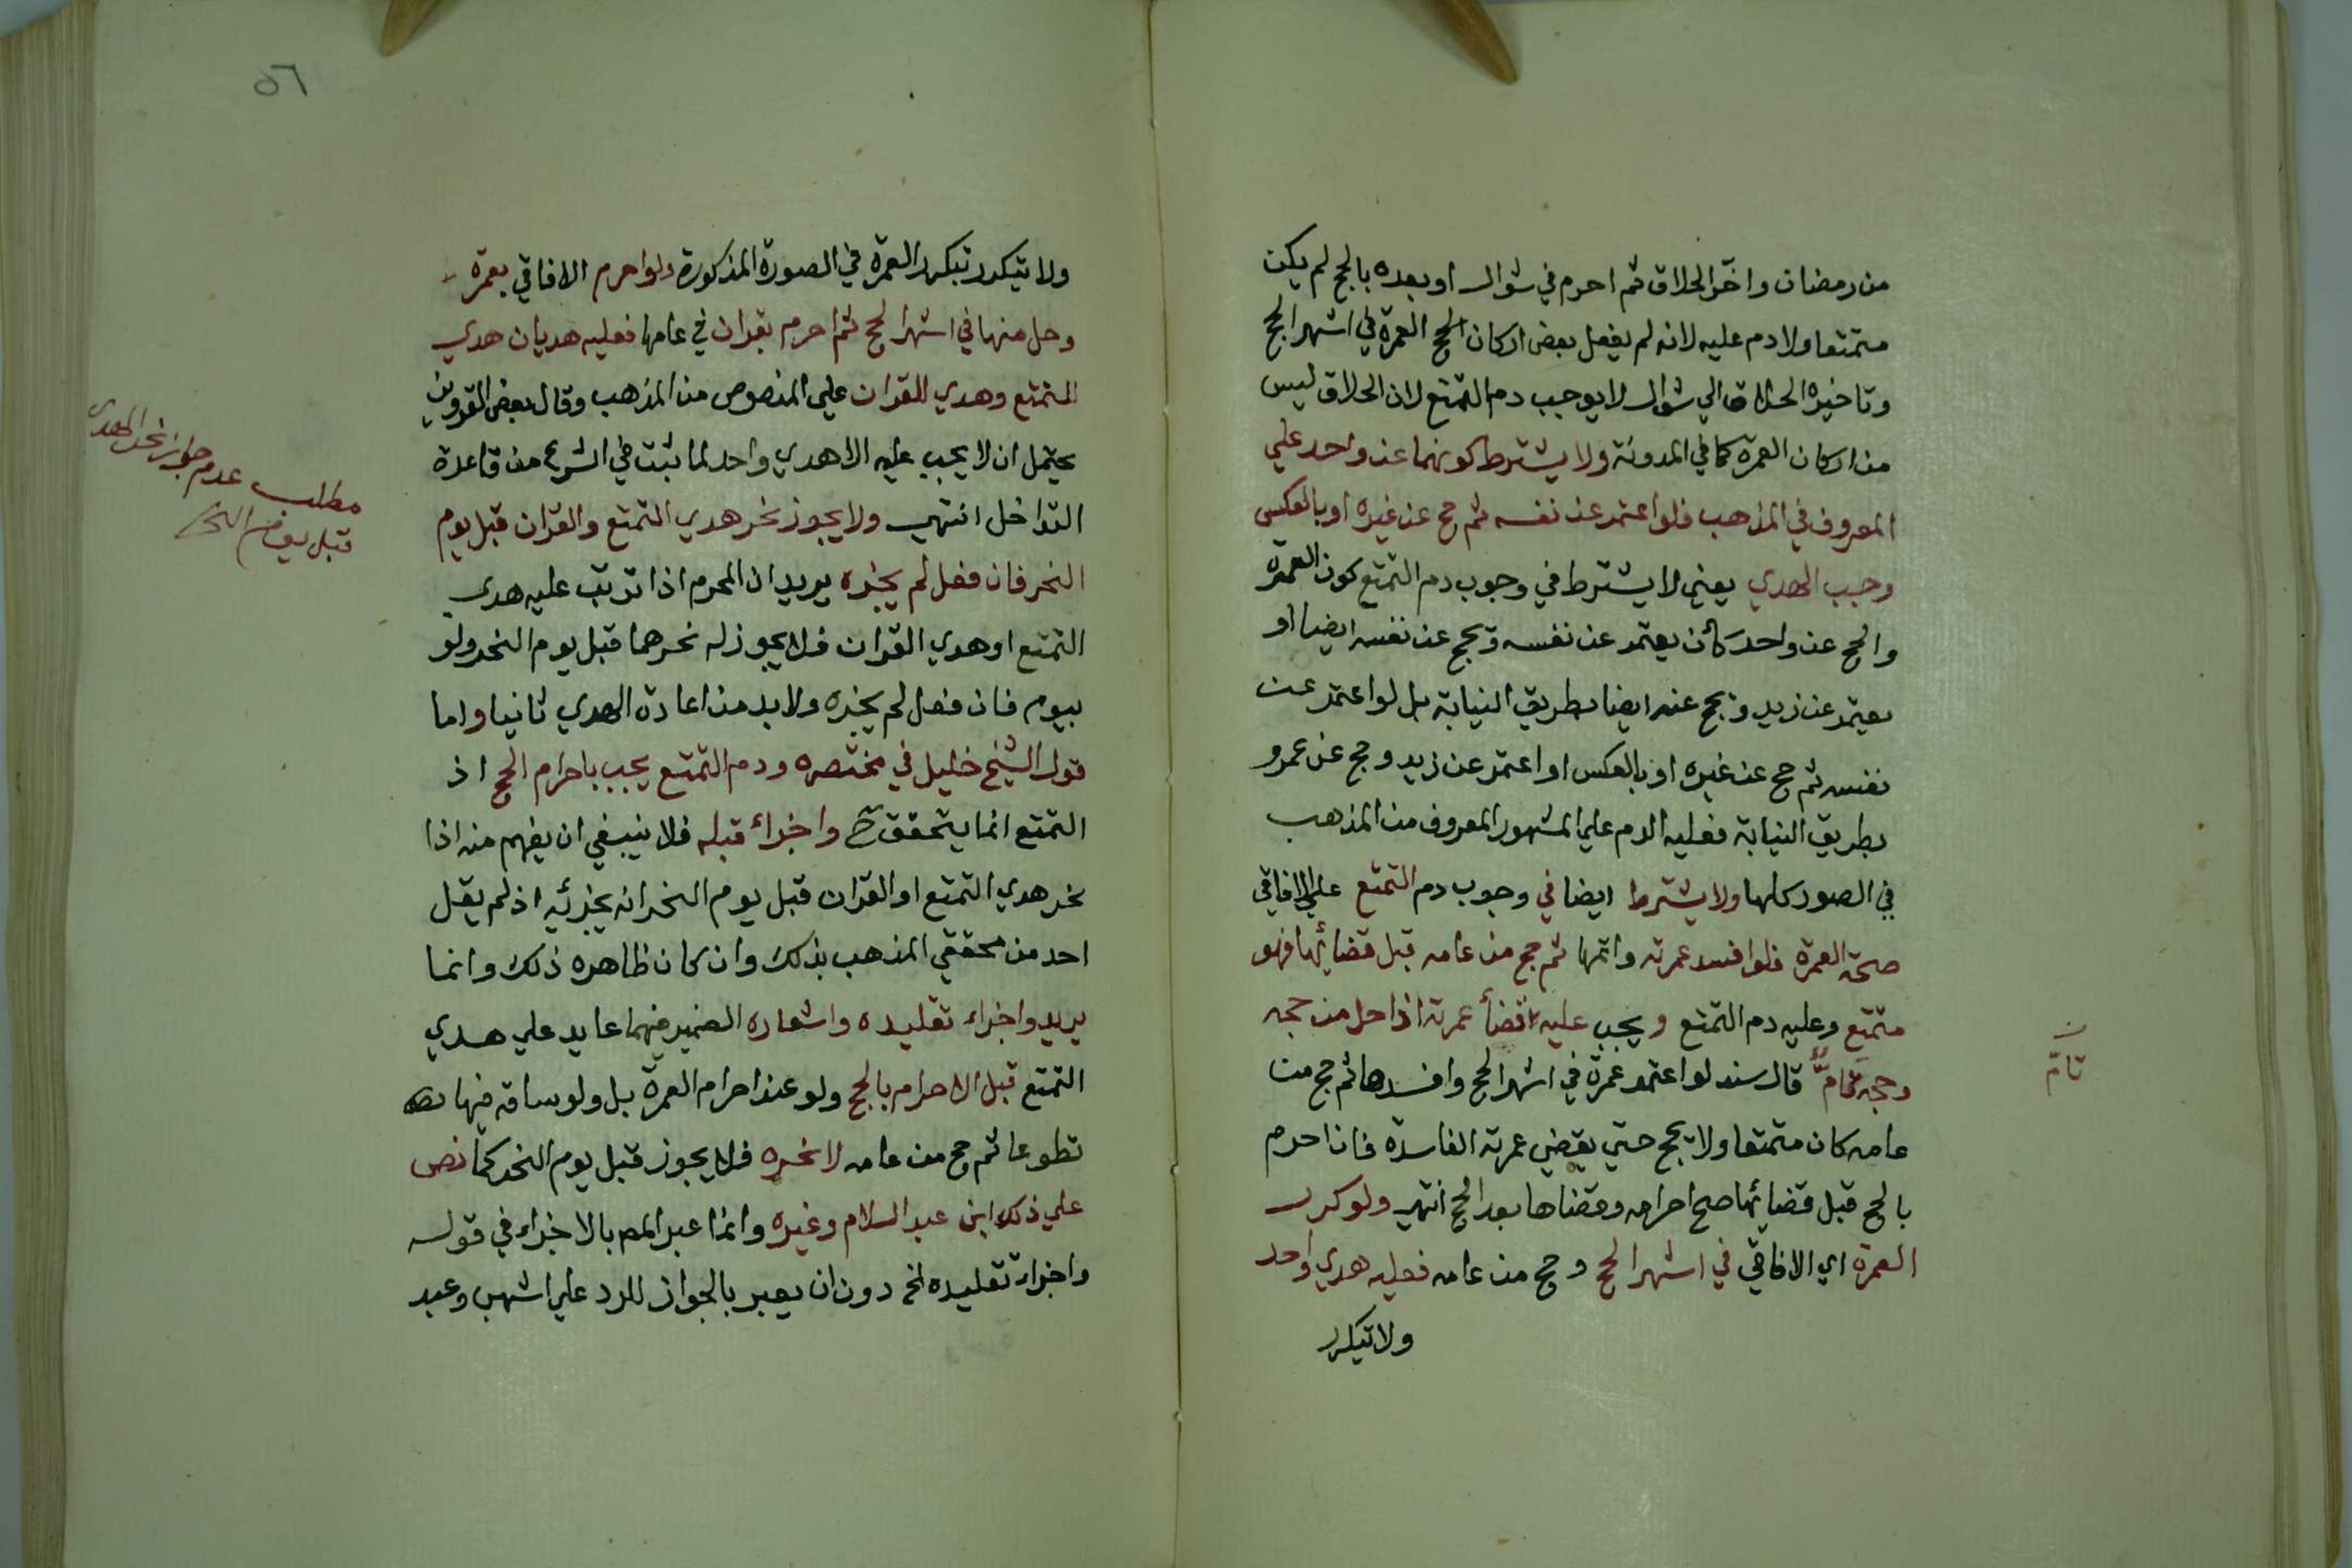 من رمضان واخّر الحلاق ثم احرم في شوال او بعده بالحج لم يكن
متمتعا ولا دم عليه لانه لم يفعل بعض اركان الحج العمرة في اشهر الحج
وتاخيره الحلاق الي شوال لا يوجب دم التمتع لان الحلاق ليس
من اركان العمرة كما في المدونة ولا يشترط كونهما عن واحد علي
المعروف في المذهب فلو اعتمر عن نفسه ثم حج عن غيره او بالعكس
وجب الهدي يعني لا يشترط في وجوب دم التمتع كون العمرة
والحج عن واحد كأن يعتمر عن نفسه ويحج عن نفسه ايضا او
يعتمر عن زيد ويحج عنه ايضا بطريق النيابة بل لو اعتمر عن
نفسه ثم حج عن غيره او بالعكس او اعتمر عن زيد وحج عن عمرو
بطريق النيابة فعليه الدم علي المشهور المعروف من المذهب
في الصور كلها ولا يشترط ايضا في وجوب دم التمتع علي الافاقي
صحة العمرة فلو افسد عمرته واتمها ثم حج من عامه قبل قضائها فهو
متمتع وعليه دم التمتع ويجب عليه قضأ عمرته اذا حل من حجه
وحجه تامّ قال سند لو اعتمر عمرة في اشهر الحج وافسدها ثم حج من
عامه كان متمتعا ولا يحج حتي يقضي عمرته الفاسدة فان احرم
بالحج قبل قضائها صح احرامه وقضاها بعد الحج انتهي ولو كرر
العمرة اي الافاقي في اشهر الحج وحج من عامه فعليه هدي واحد
ولا يتكرر
ن
تامّ
٥٦
ولا يتكرر بتكرر العمرة في الصورة المذكورة ولو احرم الافاقي بعمرة
وحل منها في اشهر الحج ثم احرم بقران في عامها فعليه هديان هدي
للتمتع وهدي للقران علي المنصوص من المذهب وقال بعض القرويين
يحتمل ان لا يجب عليه الا هدي واحد لما ثبت في الشرع من قاعدة
التداخل انتهي ولا يجوز نحر هدي التمتع والقران قبل يوم
النحر فان فعل لم يجزه يريد ان المحرم اذا ترتب عليه هدي
التمتع او هدي القران فلا يجوز له نحرهما قبل يوم النحر ولو
بيوم فان فعل لم يجزه ولا بد من اعادة الهدي ثانيا واما
قول الشيخ خليل في مختصره ودم التمتع يجب باحرام الحج اذ
التمتع انما يتحقق واجزاء قبله فلا ينبغي ان يفهم منه اذا
نحر هدي التمتع او القران قبل يوم النحر انه يجزئه اذ لم يقل
احد من محققي المذهب بذلك وان كان ظاهره ذلك وانما
يريد واجزاء تقليده واشعاره الضمير فيهما عايد علي هدي
التمتع قبل الاحرام بالحج ولو عند احرام العمرة بل ولو ساقه فيها
تطوعا ثم حج من عامه لا نحره فلا يجوز قبل يوم النحر كما نص
علي ذلك ابن عبد السلام وغيره وانما عبر المص بالاجزاء في قوله
واجزاء تقليده الخ دون ان يعبر بالجواز للرد علي اشهب وعبد
مطلب عدم جواز نحر الهدي
قبل يوم النحر